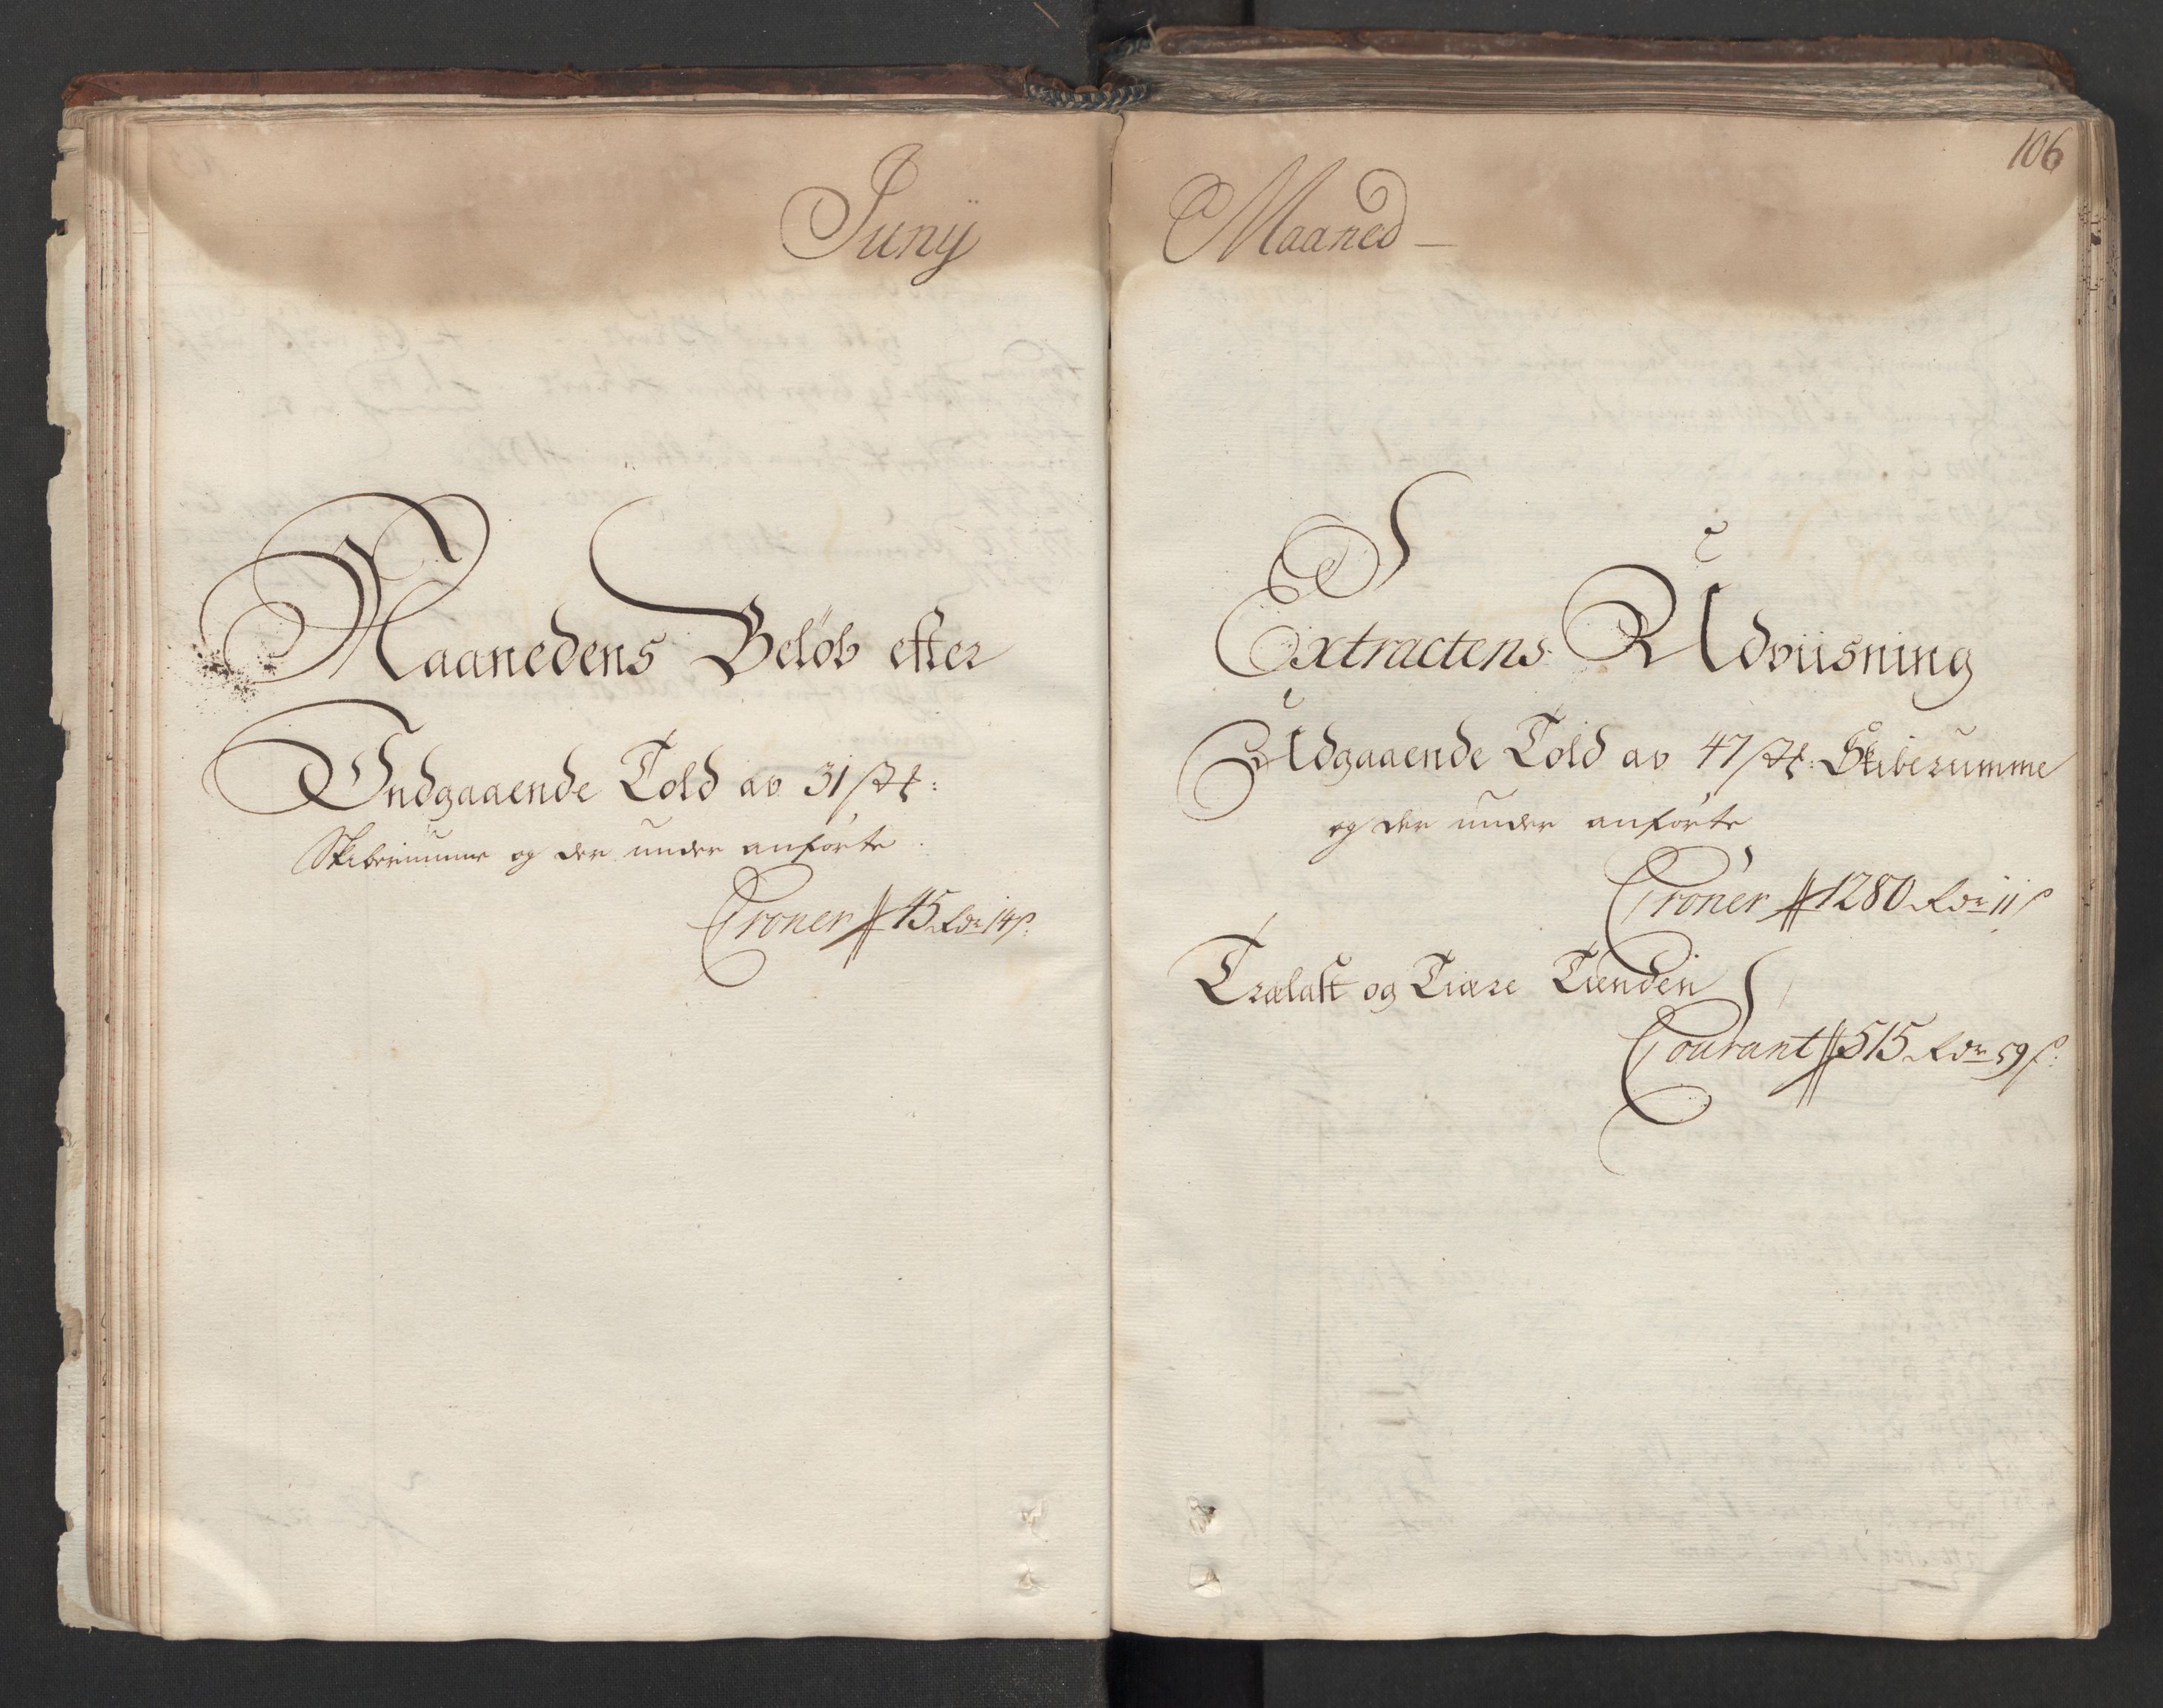 Junij
Maanedens Beløb efter
Indgaaende Told av 31 st:
Skiberumme og der under anførte
Croner # 45 Rdr 14 s:
106
Maaned
Extractens Udviisning
Udgaaende Told av 47 st: Skiberumme
og der under anførte
Croner # 1280 Rdr 11 s
Trælast og Tiære Tienden
Courant # 515 Rdr 59 s: